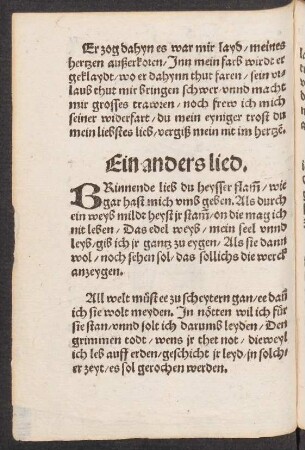 Er zog dahyn es war mir layd / meines
hertzen außerkoren / Jnn mein farb wirdt er
geklaydt / wo er dahynn thut faren / sein vr-
laub thut mir bringen schwer / vnnd macht
mir grosses trawren / noch frew ich mich
seiner widerfart / du mein eyniger trost du
mein liebstes lieb / vergiß mein nit im hertzē.
Ein anders lied.
BRinnende lieb du heysser flam̃ / wie
gar hast mich vmb geben. Als durch
ein weyb mildt heyst jr stam̃ / on die mag ich
nit leben / Das edel weyb / mein seel vnnd
leyb / gib ich jr gantz zu eygen / Als sie dann
wol / noch sehen sol / das sollichs die werck
anzeygen.
All welt müst ee zu scheytern gan / ee dañ
ich sie wolt meyden. In nötten wil ich für
sie stan / vnnd solt ich darumb leyden / Den
grimmen todt / wens jr thet not / dieweyl
ich leb auff erden / geschicht jr leyd / in solch-
er zeyt / es sol gerochen werden.